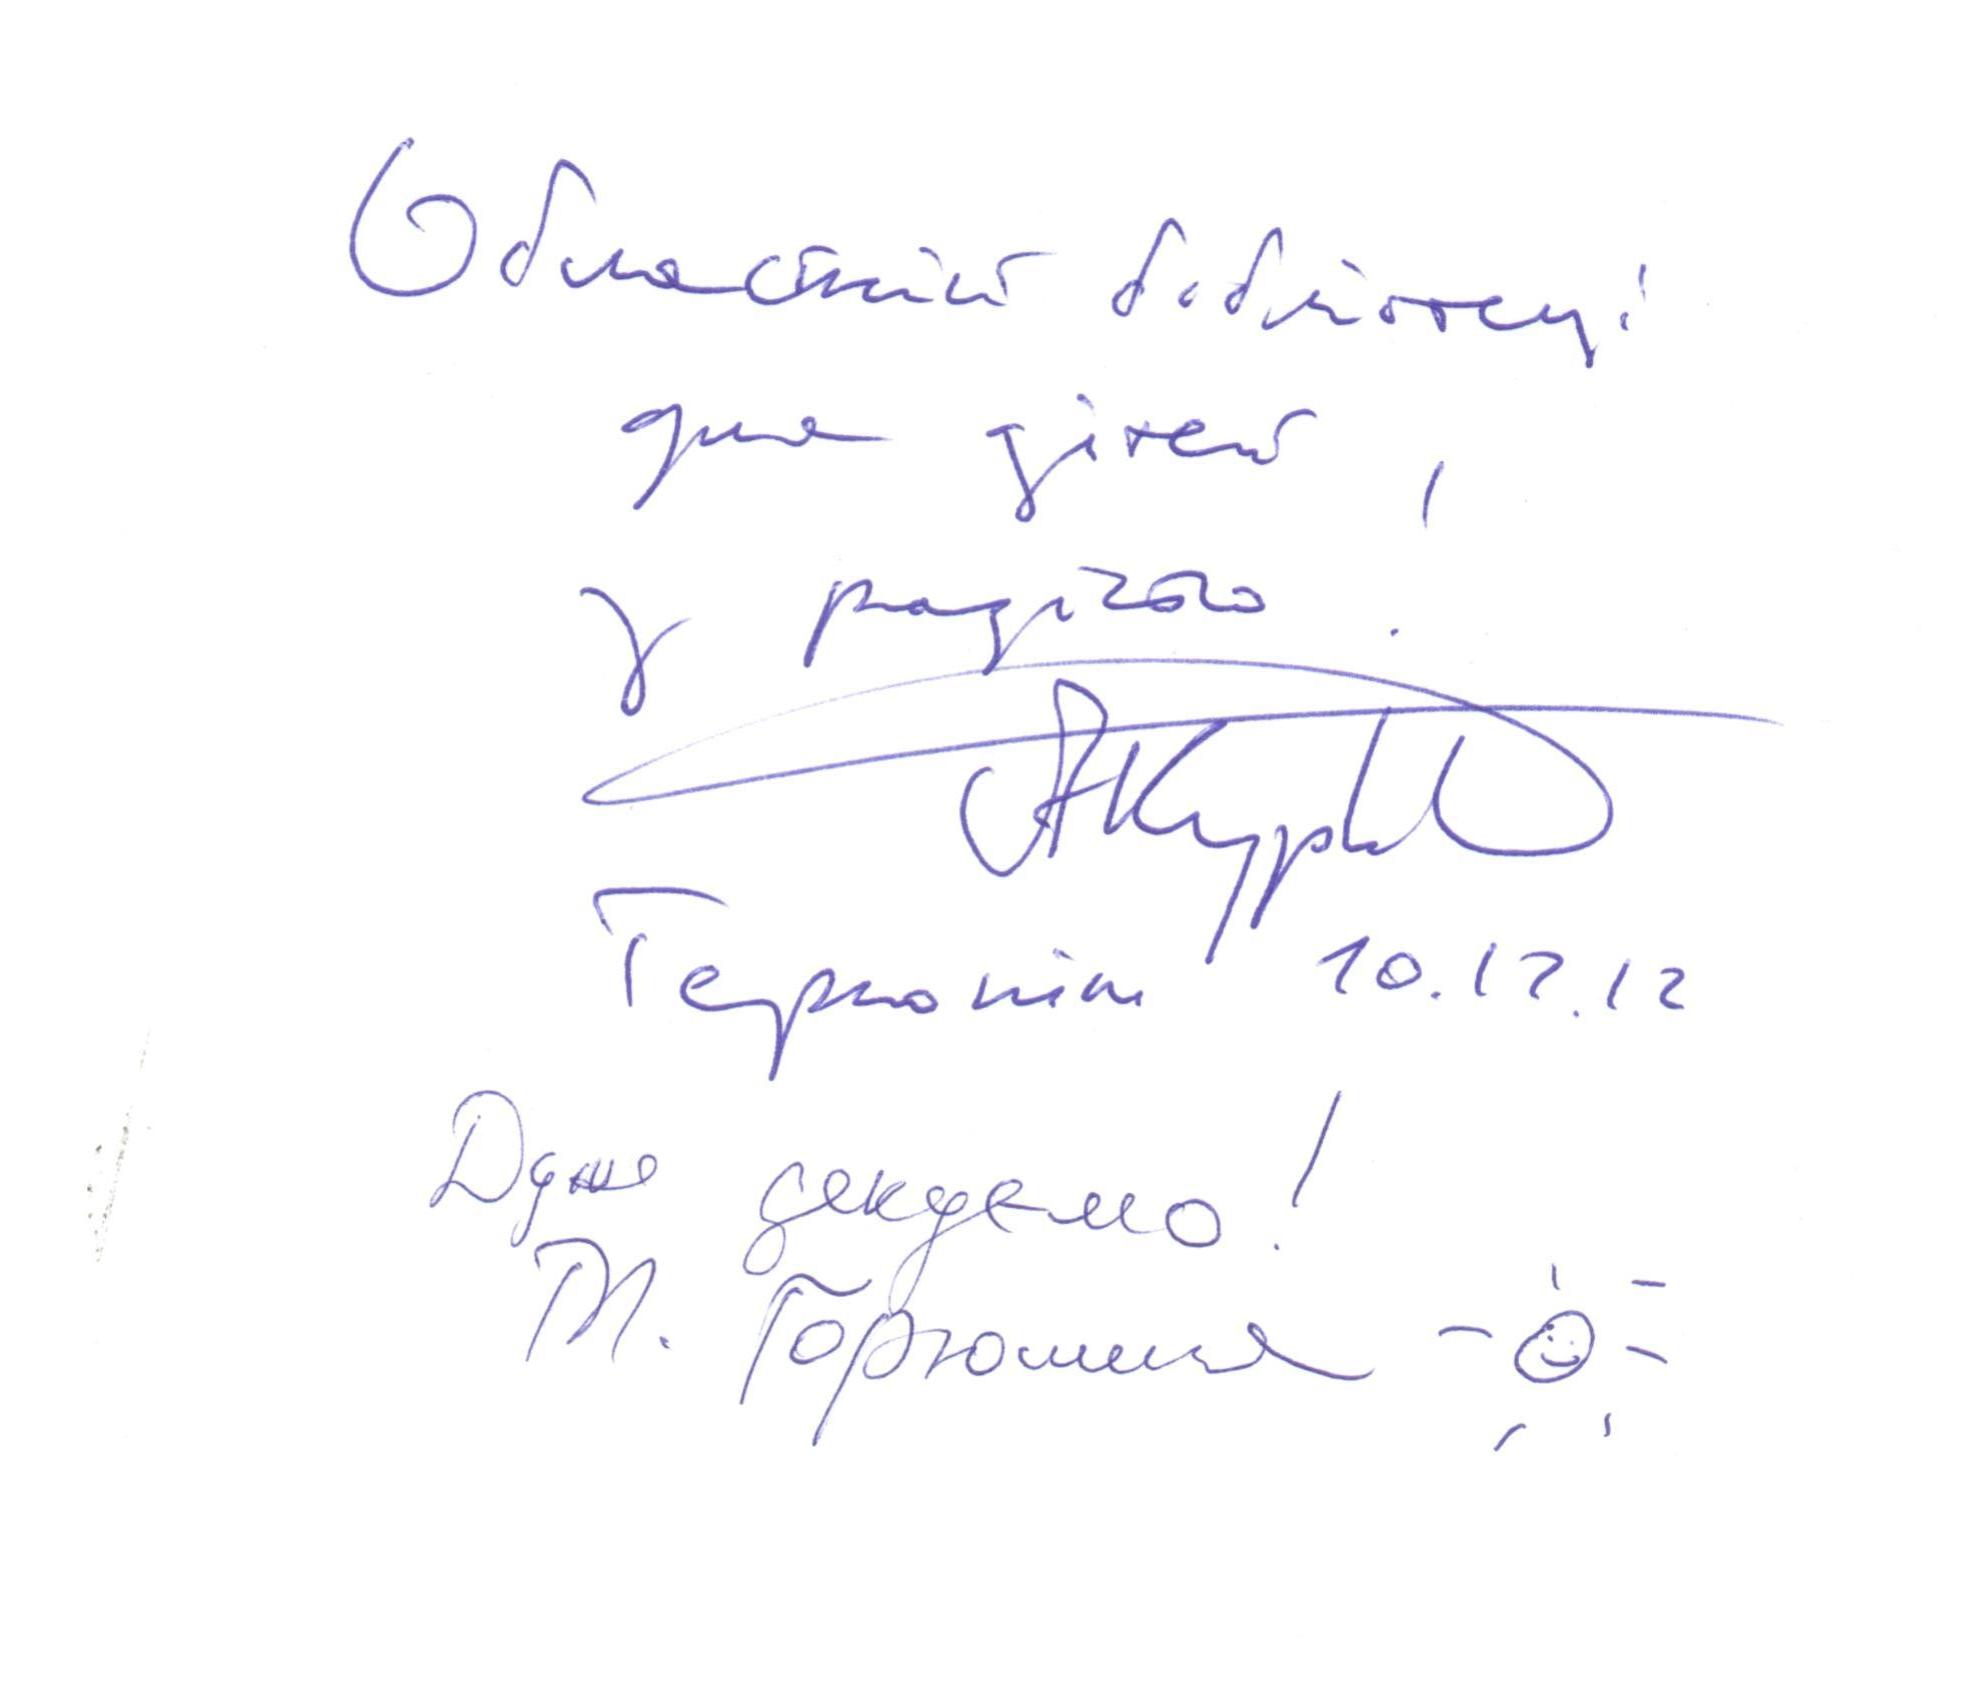 Обласній бібліотеці
для дітей,
з радістю.
Тернопіль 10.12.12
Дуже дякуємо!
М.